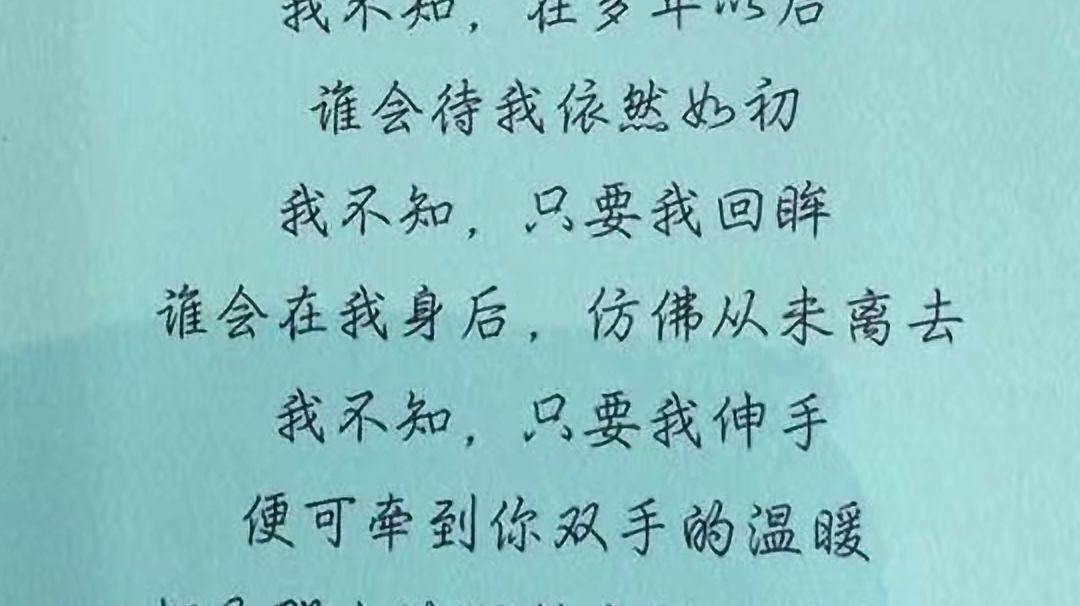 我不知，在多年以后
谁会待我依然如初
我不知，只要我回眸
谁会在我身后，仿佛从未离去
我不知，只要我伸手
便可牵到你双手的温暖